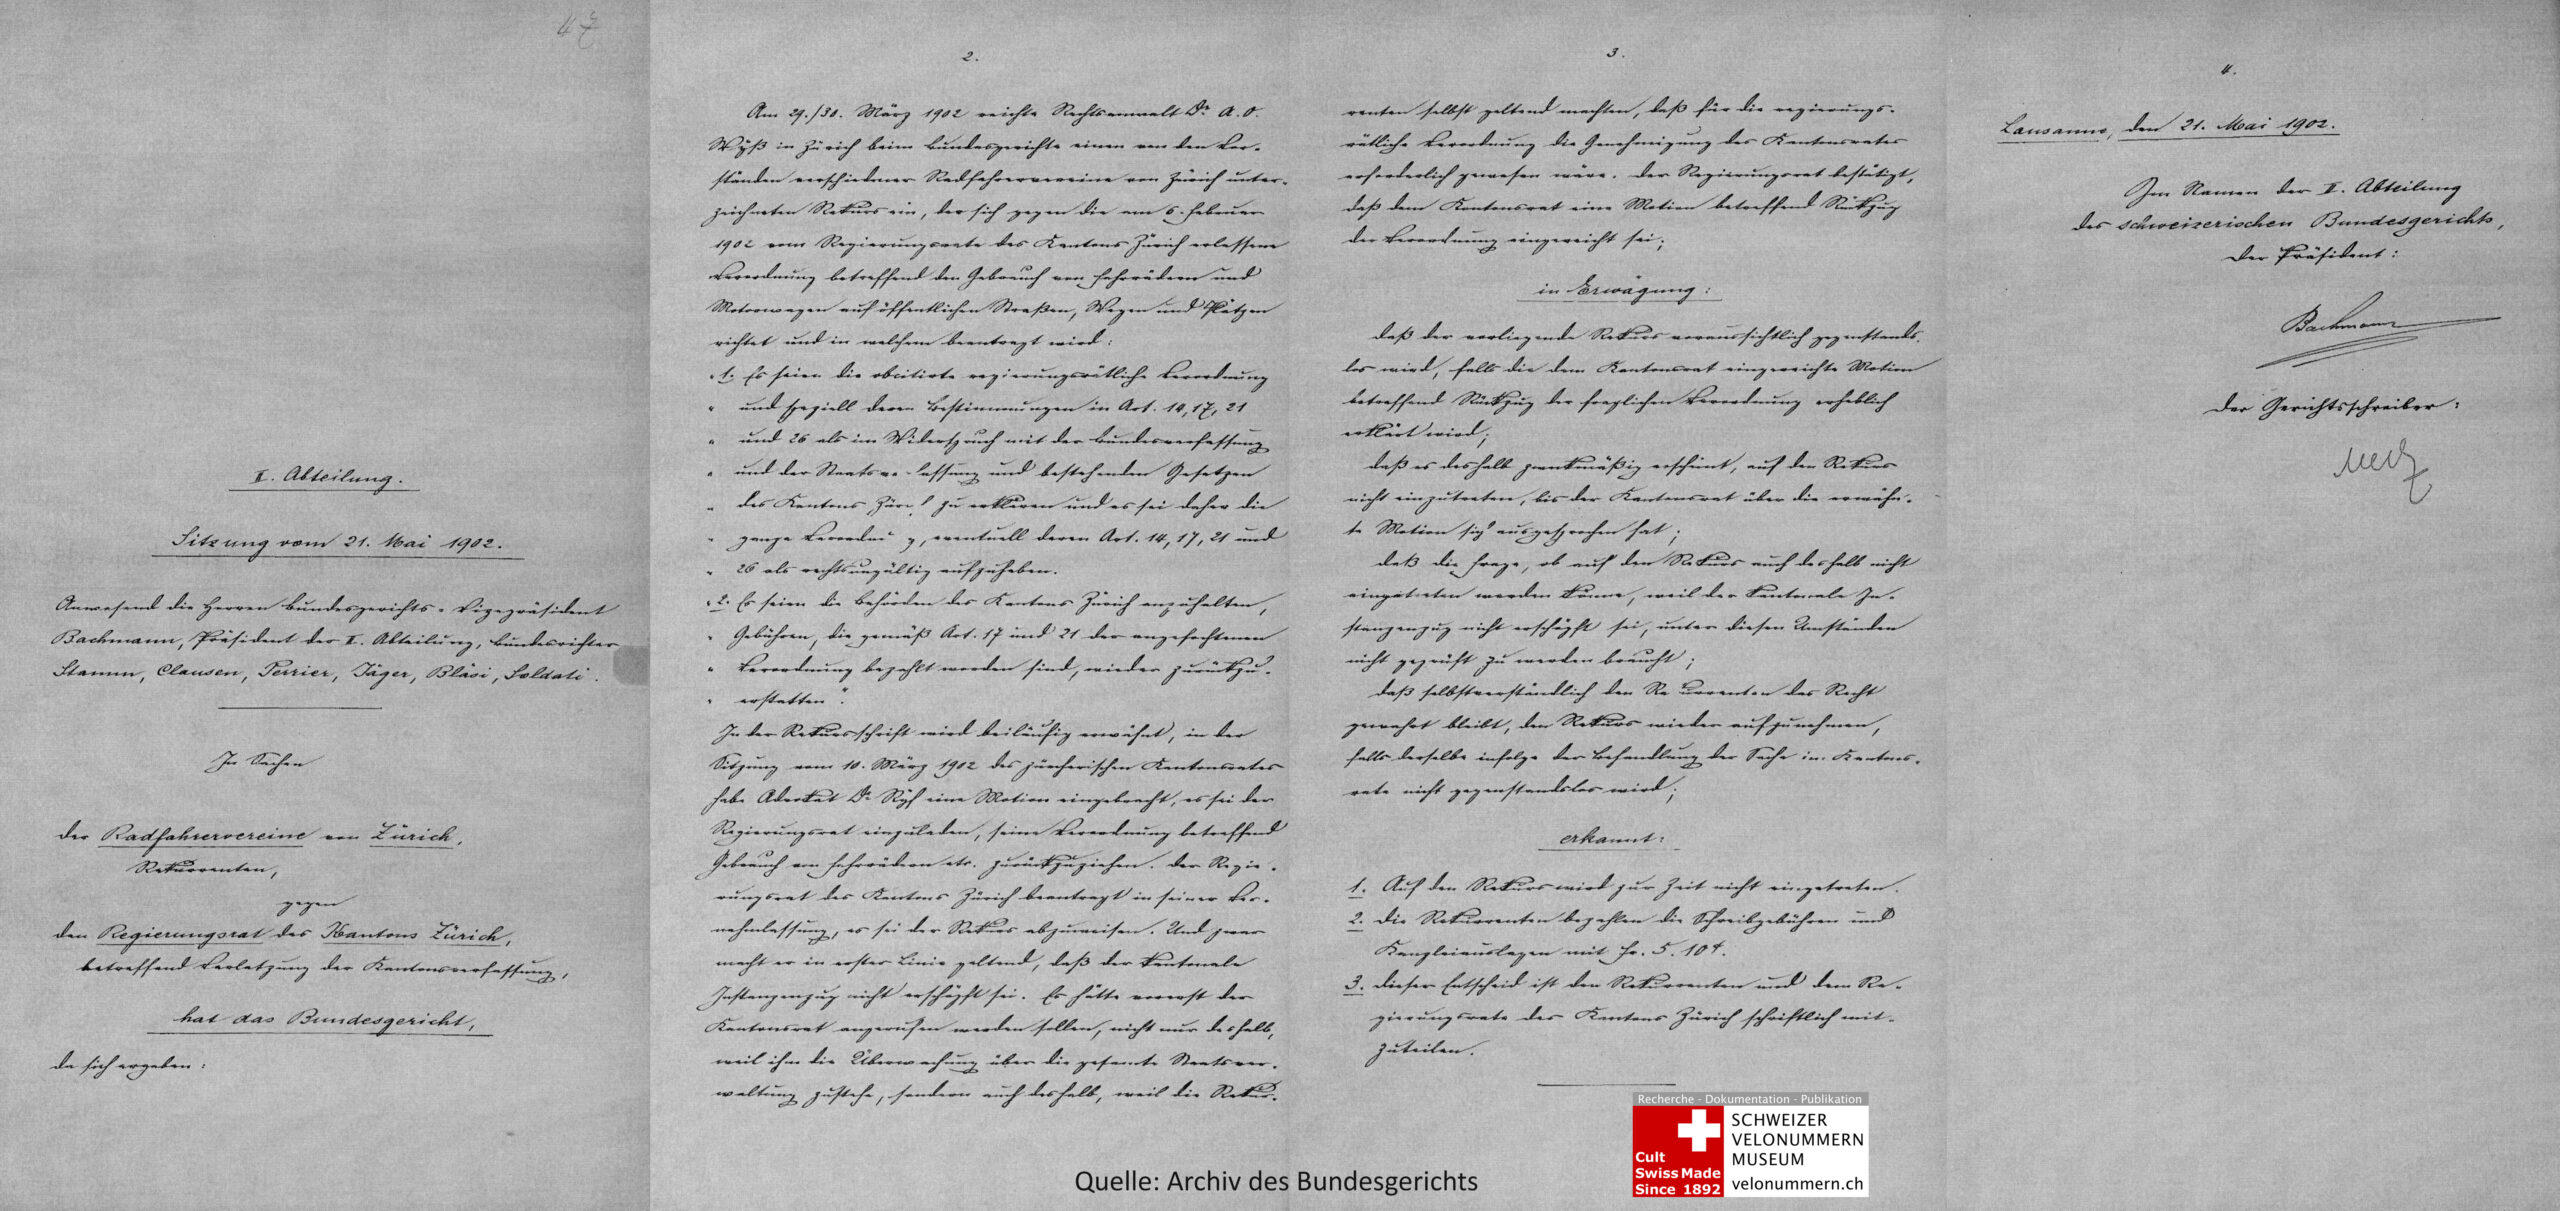 47
II. Abteilung.
Sitzung vom 21. Mai 1902.
Anwesend die Herren Bundesgerichts-Vizepräsident
Bachmann, Präsident der II. Abteilung, Bundesrichter
Stamm, Clausen, Perrier, Jäger, Bläsi, Soldati.
In Sachen
der Radfahrervereine von Zürich,
Rekurrenten,
gegen
den Regierungsrat des Kantons Zürich,
betreffend Verletzung der Kantonsverfassung,
hat das Bundesgericht,
da sich ergeben:
2.
Am 29./30. März 1902 reichte Rechtsanwalt Dr A. O.
Wyß in Zürich beim Bundesgerichte einen von den Vor-
ständen verschiedener Radfahrervereine von Zürich unter-
zeichneten Rekurs ein, der sich gegen die am 6. Februar
1902 vom Regierungsrate des Kantons Zürich erlassene
Verordnung betreffend den Gebrauch von Fahrrädern und
Motorwagen auf öffentlichen Straßen, Wegen und Plätzen
richtet und in welchem beantragt wird:
„1. Es seien die obcitirte regierungsrätliche Verordnung
„ und speziell deren Bestimmungen in Art. 14, 17, 21
„ und 26 als im Widerspruch mit der Bundesverfassung
„ und der Staatsverfassung und bestehenden Gesetzen
„ des Kantons Zürich zu erklären und es sei daher die
„ ganze Verordnung, eventuell deren Art. 14, 17, 21 und
„ 26 als rechtsungültig aufzuheben.
„2. Es seien die Behörden des Kantons Zürich anzuhalten,
„ Gebühren, die gemäß Art. 17 und 21 der angefochtenen
„ Verordnung bezahlt worden sind, wieder zurückzu-
„ erstatten“.
In der Rekursschrift wird beiläufig erwähnt, in der
Sitzung vom 10. März 1902 des zürcherischen Kantonsrates
habe Advokat Dr Ryf eine Motion eingebracht, es sei der
Regierungsrat einzuladen, seine Verordnung betreffend
Gebrauch von Fahrrädern etc. zurückzuziehen. Der Regie-
rungsrat des Kantons Zürich beantragt in seiner Ver-
nehmlassung, es sei der Rekurs abzuweisen. Und zwar
macht er in erster Linie geltend, daß der kantonale
Instanzenzug nicht erschöpft sei. Es hätte vorerst der
Kantonsrat angerufen werden sollen, nicht nur deshalb,
weil ihm die Überwachung über die gesamte Staatsver-
waltung zustehe, sondern auch deshalb, weil die Rekur-
3.
renten selbst geltend machten, daß für die regierungs-
rätliche Verordnung die Genehmigung des Kantonsrates
erforderlich gewesen wäre. Der Regierungsrat bestätigt,
daß dem Kantonsrat eine Motion betreffend Rückzug
der Verordnung eingereicht sei;
in Erwägung:
daß der vorliegende Rekurs voraussichtlich gegenstands-
los wird, falls die dem Kantonsrat eingereichte Motion
betreffend Rückzug der fraglichen Verordnung erheblich
erklärt wird;
daß es deshalb zweckmäßig erscheint, auf den Rekurs
nicht einzutreten, bis der Kantonsrat über die erwähn-
te Motion sich ausgesprochen hat;
daß die Frage, ob auf den Rekurs auch deshalb nicht
eingetreten werden könne, weil der kantonale In-
stanzenzug nicht erschöpft sei, unter diesen Umständen
nicht geprüft zu werden braucht;
daß selbstverständlich den Rekurrenten das Recht
gewahrt bleibt, den Rekurs wieder aufzunehmen,
falls derselbe infolge der Behandlung der Sache im Kantons-
rate nicht gegenstandslos wird;
erkannt:
1. Auf den Rekurs wird zur Zeit nicht eingetreten.
2. Die Rekurrenten bezahlen die Schreibgebühren und
Kanzleiauslagen mit Fr. 5. 10 ct.
3. Dieser Entscheid ist den Rekurrenten und dem Re-
gierungsrate des Kantons Zürich schriftlich mit-
zuteilen.
4.
Lausanne, den 21. Mai 1902.
Im Namen der II. Abteilung
des schweizerischen Bundesgerichts,
Der Präsident:
Bachmann
Der Gerichtsschreiber:
Recherche - Dokumentation - Publikation
Cult
Swiss Made
Since 1892
SCHWEIZER
VELONUMMERN
MUSEUM
velonummern.ch
Quelle: Archiv des Bundesgerichts